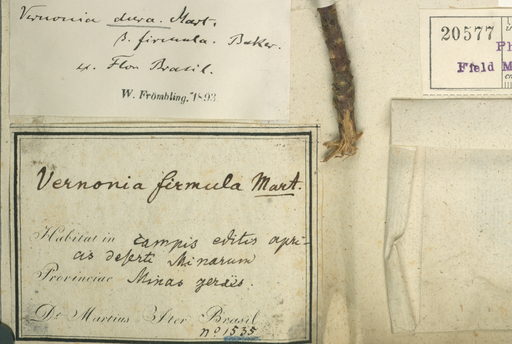 Vernonia dura. Mart.
β. firmula. Baker.
ex. Flor. Brasil.
W. Frömbling. 1893
20577
Ph
Field M
Vernonia firmula Mart.
Habitat in campis editis apri-
cis deserti Minarum
Provinciae Minas geraës.
Dr Martius Iter Brasil
nº 1535